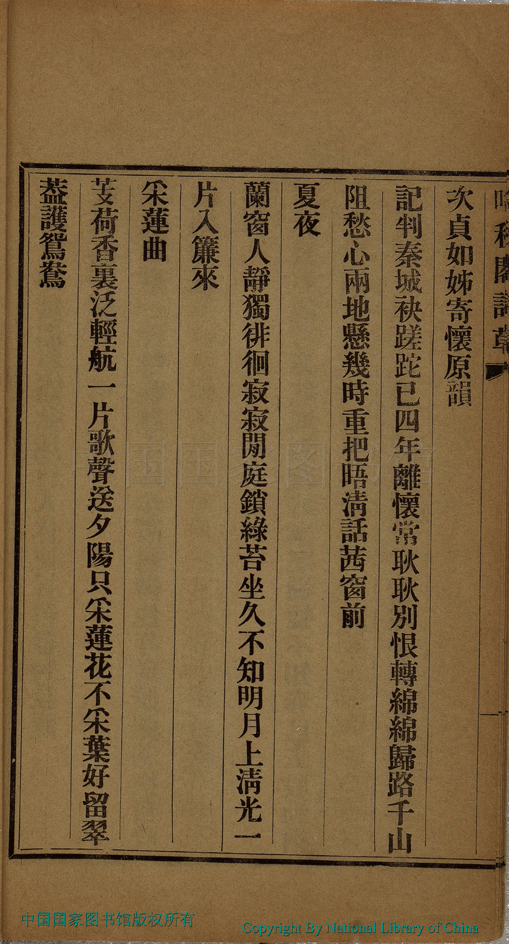 次貞如姊寄懷原韻
記判秦城袂蹉跎已四年離懷常耿耿別恨轉綿綿歸路千山
阻愁心兩地懸幾時重把晤淸話茜窗前
夏夜
蘭窗人靜獨徘徊寂寂閒庭鎖綠苔坐久不知明月上淸光一
片入簾來
采蓮曲
芰荷香裏泛輕航一片歌聲送夕陽只采蓮花不采葉好留翠
葢護鴛鴦
中国国家图书馆版权所有
Copyright By National Library of China